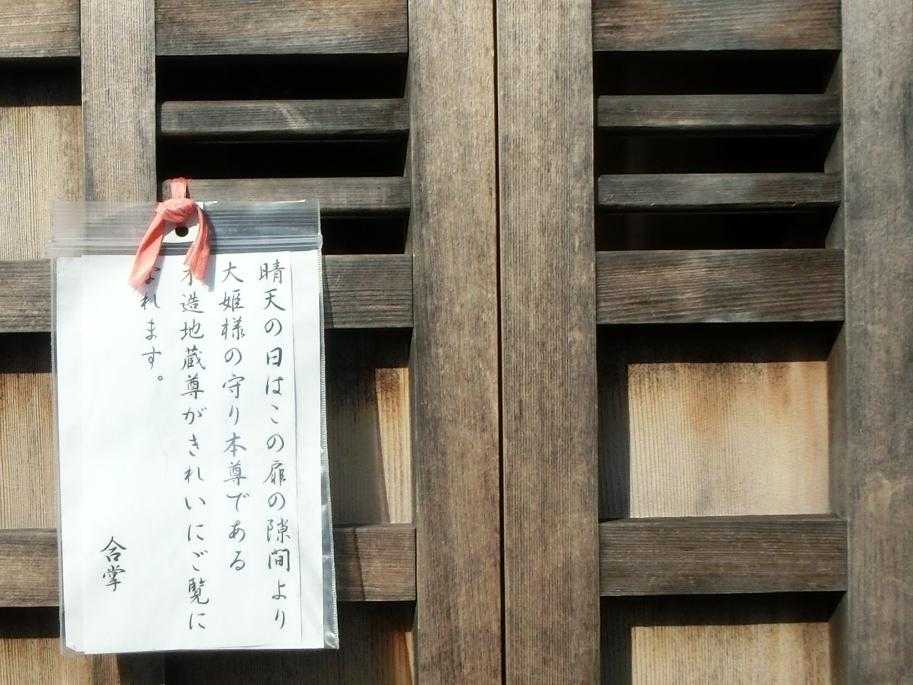 晴天の日はこの扉の隙間より
大姫様の守り本尊である
木造地蔵尊がきれいにご覧に
なれます。
合掌